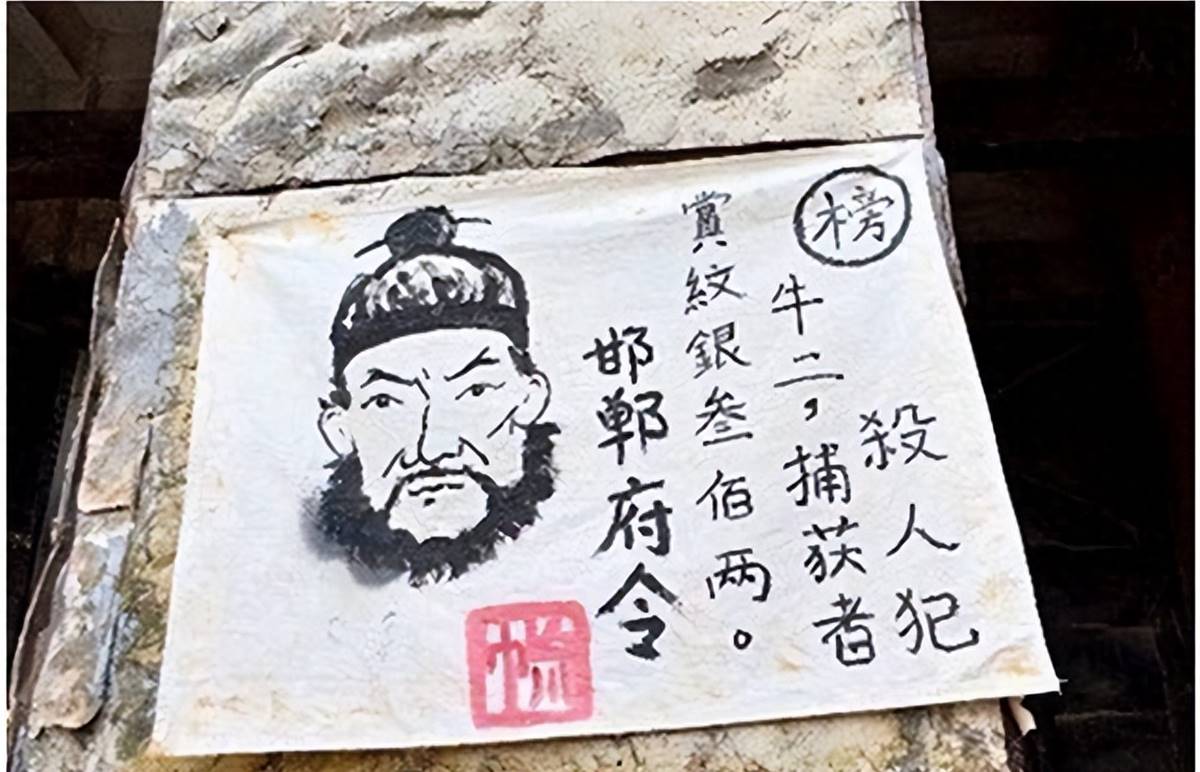 榜
殺人犯
牛二，捕获者
賞紋銀叁佰两。
邯郸府令